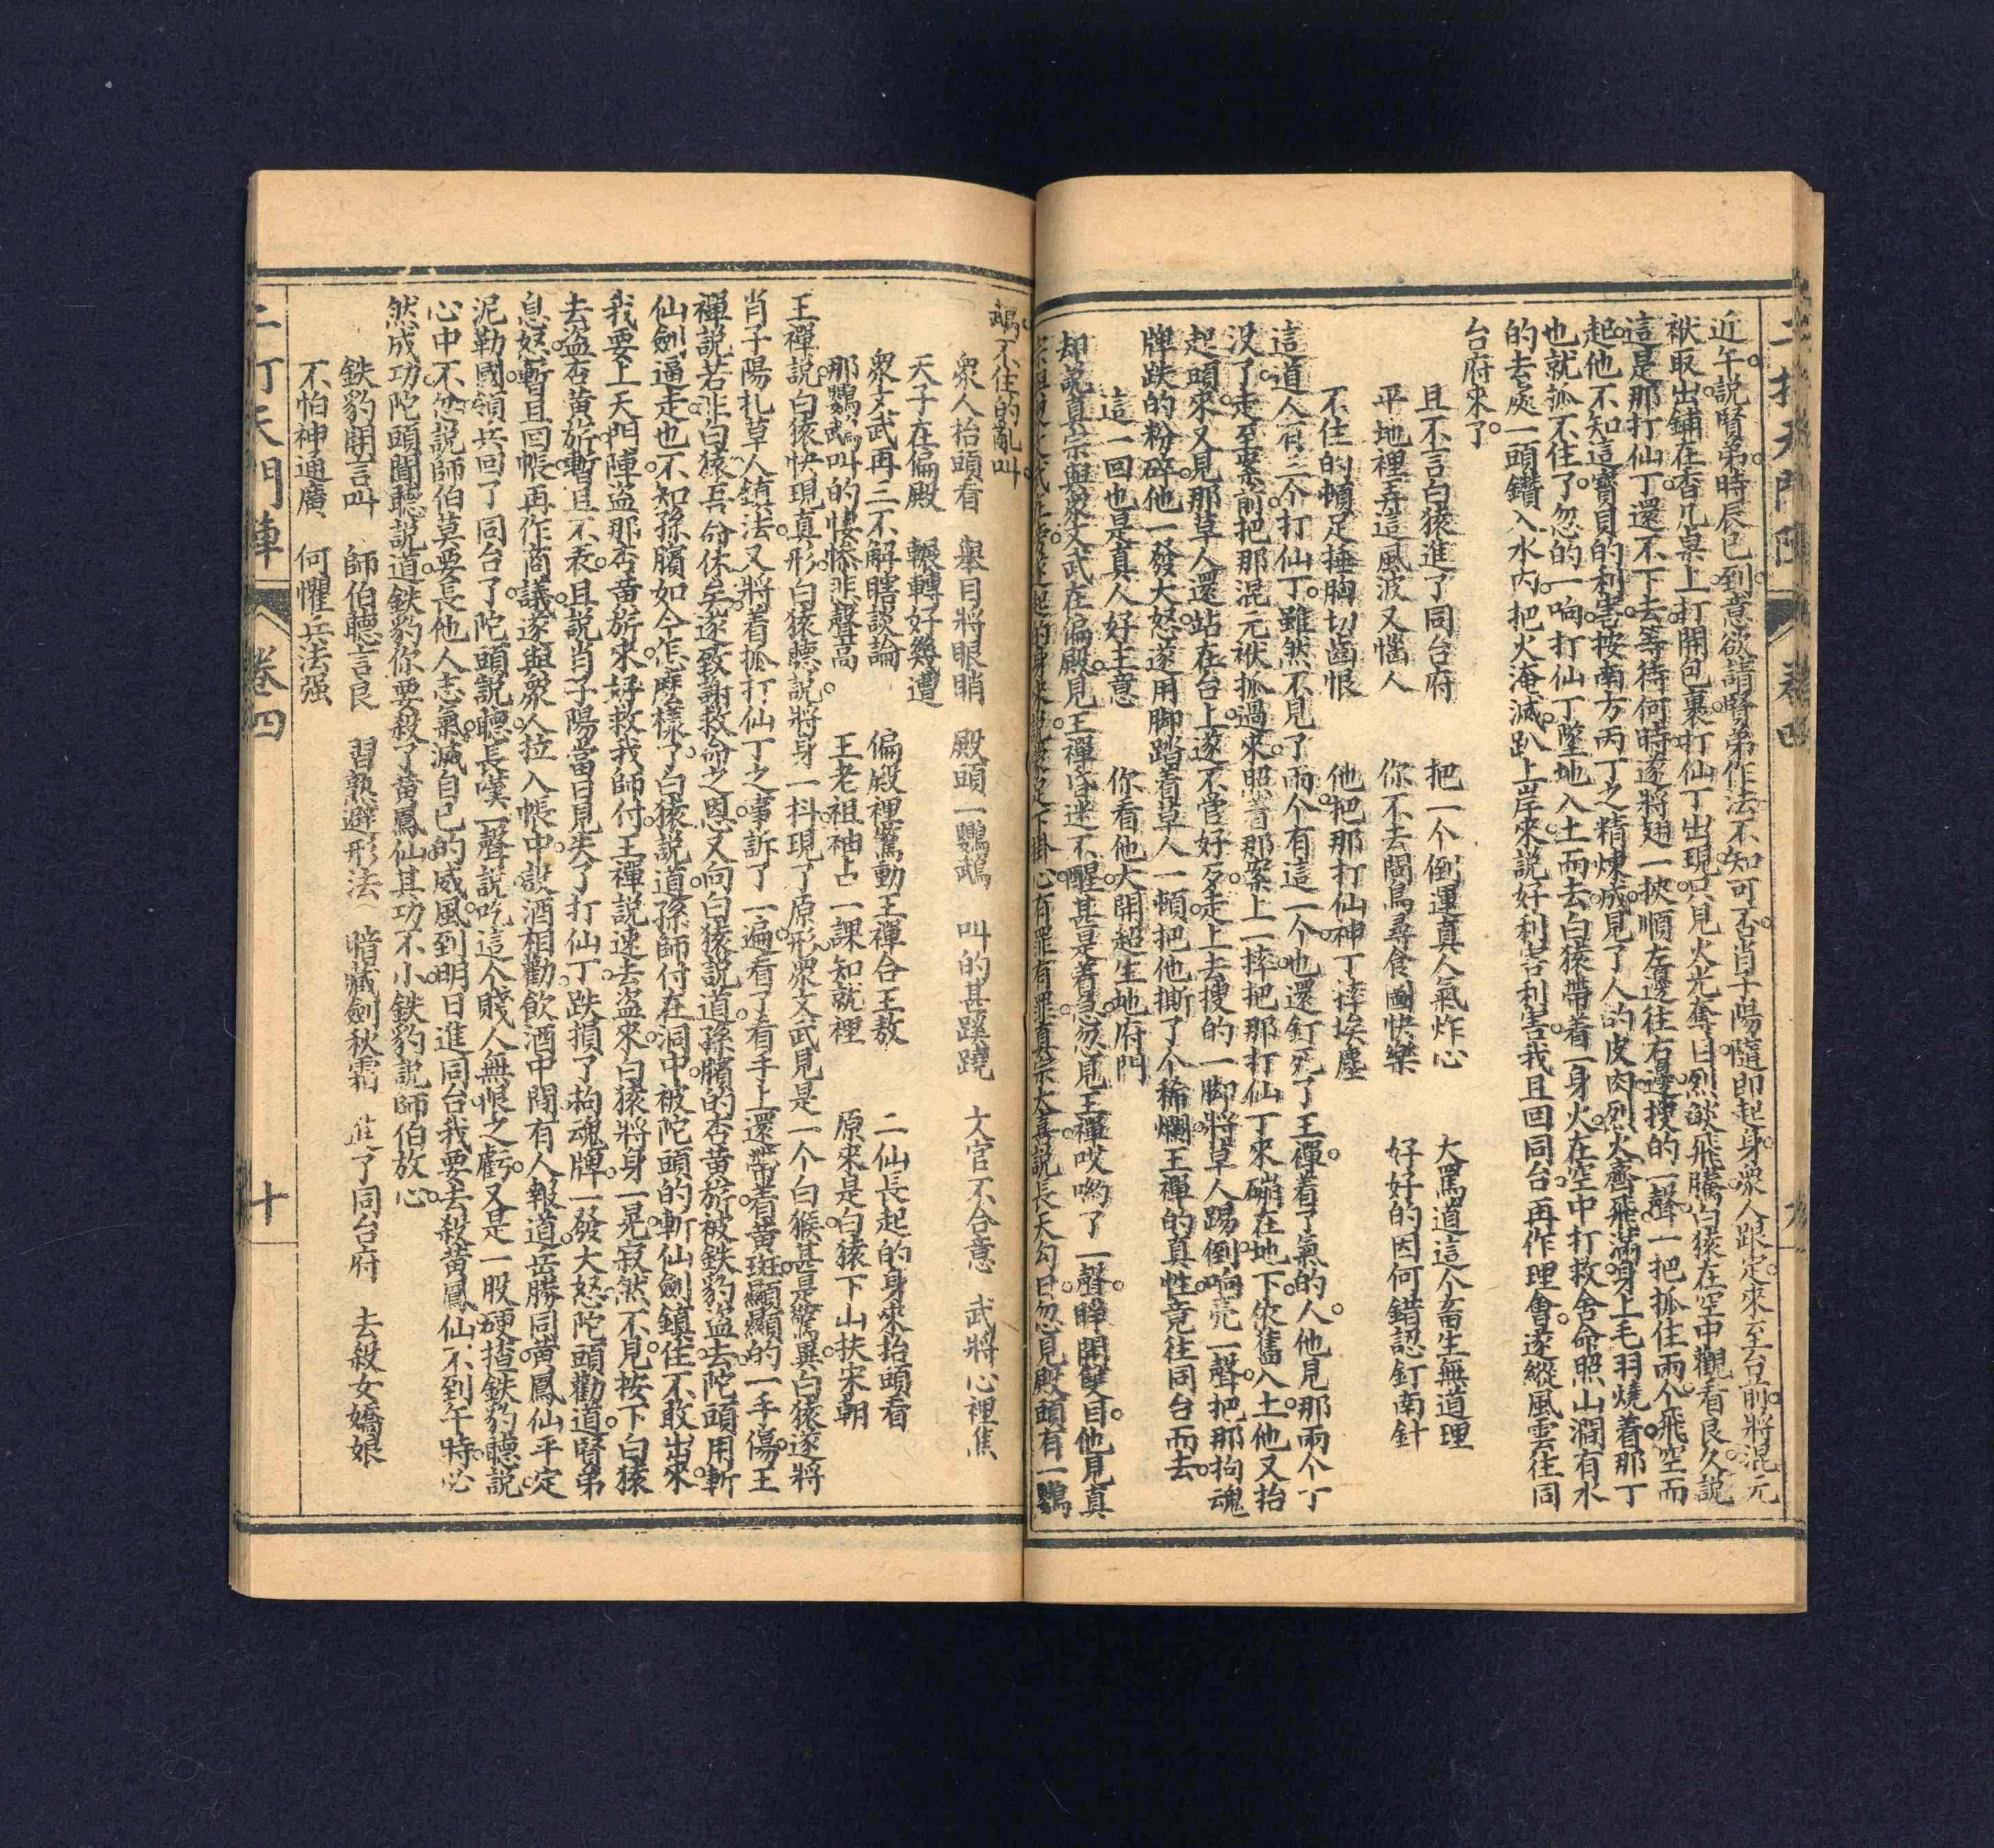 二打天門陣 卷四 九
近午。説賢弟。時辰已到。意欲請賢弟作法。不知可否。肖子陽隨即起身。衆人跟定。來至台前。將混元
袱取出。鋪在香几桌上。打開包裹。打仙丁出現。只見火光奪目。烈燄飛騰。白猿在空中觀看良久。説
這是那打仙丁。還不下去。等待何時。遂將翅一披。順左邊往右邊摟的一聲。一把抓住兩个。飛空而
起。他不知這寶貝的利害。按南方丙丁之精煉成。見了人的皮肉。烈火齊飛。滿身上毛羽燒着。那丁
也就抓不住了。忽的一响。打仙丁墜地入土而去。白猿帶着一身火。在空中打救。舍命照山澗有水
的去處一頭鑽入水内。把火淹滅。趴上岸來。説好利害利害。我且回同台。再作理會。遂縱風雲往同
台府來了。
且不言白猿進了同台府　把一个倒運真人氣炸心　大罵道這个畜生無道理
平地裡弄這風波又惱人　你不去閣鳥尋食圖快樂　好好的因何錯認釘南針
不住的頓足捶胸切齒恨　他把那打仙神丁摔埃塵
這道人有三个打仙丁。雖然不見了兩个。有這一个。也還釘死了王禪。着了氣的人。他見那兩个丁
没了。走至案前。把那混元袱抓過來。照着那案上一摔。把那打仙丁來礤在地下。依舊入土。他又抬
起頭來。又見那草人還站在台上。遂不管好歹。走上去摟的一脚。將草人踢倒。响亮一聲。把那拘魂
牌跌的粉碎。他一發大怒。遂用脚踏着草人一頓。把他撕了个稀爛。王禪的真性竟往同台而去。
這一回也是真人好主意　你看他大開超生地府門
却説真宗與衆文武在偏殿。見王禪昏迷不醒。甚是着急。忽見王禪哎喲了一聲。睜開雙目。他見真
下掛心。有罪有罪。真宗大喜。説長天勾日。忽見殿頭有一鸚
鵡。不住的亂叫。
衆人抬頭看　舉目將眼睄　殿頭一鸚鵡　叫的甚蹊蹺　文官不合意　武將心裡焦
天子在偏殿　輾轉好幾遭
衆文武再三不解瞎談論　偏殿裡驚動王禪合王敖　二仙長起的身來抬頭看
那鸚鵡叫的悽慘悲聲高。　王老祖袖占一課知就裡　原來是白猿下山扶宋朝
王禪説。白猿快現真形。白猿聽説。將身一抖。現了原形。衆文武見是一个白猴。甚是驚異。白猿遂將
肖子陽札草人鎮法。又將着抓打仙丁之事。訴了一遍。看了看手上。還帶着黄斑顯顯的一手傷。王
禪説。若非白猿。吾命休矣。遂致謝救命之恩。又向白猿説道。孫臏的杏黄旂被鉄豹盗去。陀頭用斬
仙劍逼走。也不知孫臏如今怎麽樣了。白猿説道。孫師付在洞中。被陀頭的斬仙劍鎮住。不敢出來。
我要上天門陣盗那杏黄旂來。好救我師付。王禪説。速去盗來。白猿將身一晃。寂然不見。按下白猿
去盗杏黄旂。暫且不表。且説肖子陽當日見失了打仙丁。跌損了拘魂牌。一發大怒。陀頭勸道。賢弟
息怒。暫且回帳。再作商議。遂與衆人拉入帳中。設酒相勸。飲酒中間。有人報道。岳勝同黄鳳仙平定
泥勒國。領兵回了同台了。陀頭説聽。長嘆一聲。説吃這个賤人無恨之虧。又是一股硬揸。鉄豹聽説。
心中不忿。説師伯莫要長他人志氣。滅自己的威風。到明日進同台。我要去殺黄鳳仙。不到午時。必
然成功。陀頭聞聽。説道。鉄豹你要殺了黄鳳仙。其功不小。鉄豹説。師伯放心。
鉄豹開言叫　師伯聽言良　習熟遊形法　暗藏劍秋霜　進了同台府　去殺女嬌娘
不怕神通廣　何懼兵法强
二打天門陣 卷四 十